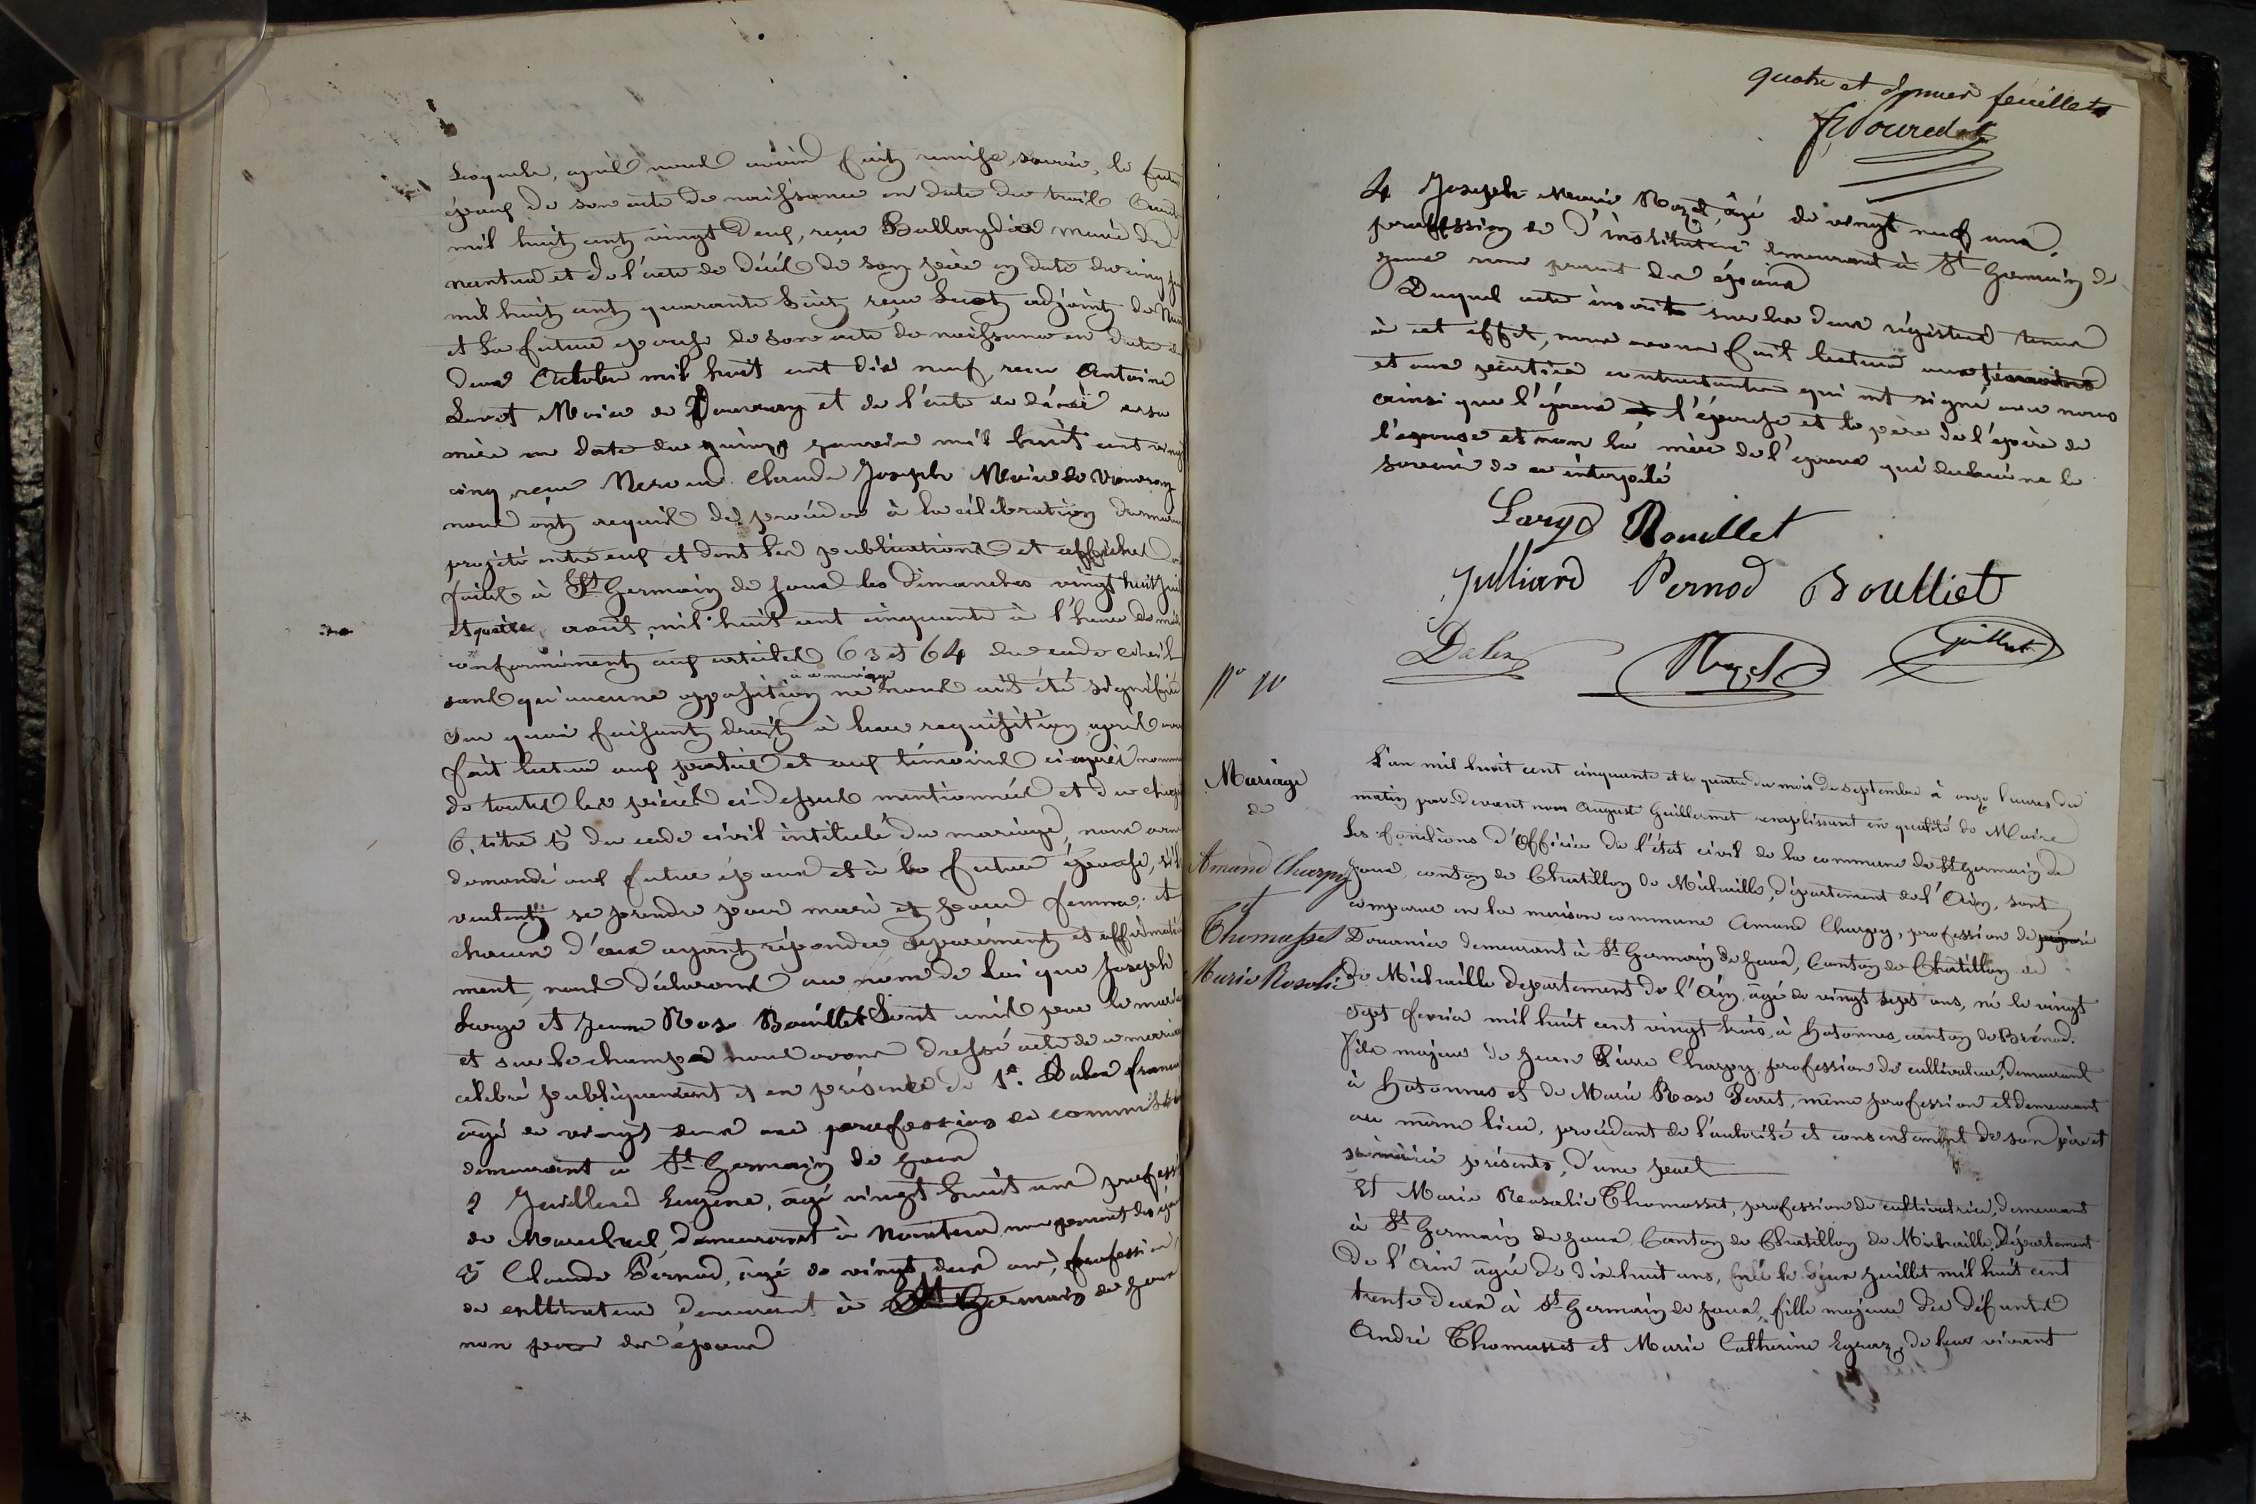 Lesquels, après nous avoir fait remise, savoir, le futur
époux de son acte de naissance en date du trois
mil huit cent vingt deux, reçu Ballaydier Maire de
nantua et de l'acte de décès de son père en date du cinq
mil huit cent quarante huit reçu adjoint de
et la future épouse de son acte de naissance en date du
deux Octobre mil huit cent dix neuf, reçu Antoine
Maire de et de l'acte de décès de sa
mère en date du quinze janvier mil huit cent vingt
cinq, reçu Claude Joseph Maire de
nous ont requis de procéder à la célébration du mariage
projeté entre eux et dont les publications et affiches
faites à St Germain de joux les dimanches vingt huit
et quatre août mil huit cent cinquante à l'heure de midi
conformément aux articles 63 et 64 du code civil
sans qu'aucune opposition à ce mariage ne nous ait été signifiée
Sur quoi faisant droit à leur requisition après avoir
fait lecture aux parties et aux témoins ci-après nommés
de toutes les pièces ci-dessus mentionnées et du chapitre
6, titre 5 du code civil intitulé du mariage, nous avons
demandé aux futur époux et à la future épouse, s'ils
veulent se prendre pour mari et pour femme; et
chacun d'eux ayant répondu séparément et affirmative
ment, nous déclarons au nom de la loi que Joseph
Large et Jeanne Rose Bouillet Sont unis par le mariage
et sur le champ nous avons dressé acte de ce mariage
célébré publiquement et en présence de 1º. Dalex françois
âgé de vingt deux ans profession de
demeurant à St Germain de joux
2 Juilliard Eugène, âgé vingt huit ans profession
de Marechal demeurant à Nantua non parent des époux
3 Claude Pernod, âgé de vingt deux ans, profession
de cultivateur demeurant à St Germain de joux
non parent des époux
quatre et dernier feuillets
4 Joseph Marie Rozet, âgé de vingt neuf ans,
profession de d'instituteur demeurant à St Germain de
joux non parent des époux
Duquel acte inscrit sur les deux régistres tenus
à cet effet, nous avons fait lecture aux témoins
et aux parties contractantes qui ont signé avec nous
ainsi que l'époux et l'épouse et le père de l'époux de
l'epouse et non la mère de l'époux qui déclare ne le
savoir de ce interpelé
Large Bouillet
Julliard Pernod Boulliet
Dalex Rozet Guillermet
Nº 10
Mariage
de
Amand Charpy
et
Thomasset
Marie Rosalie
L'an mil huit cent cinquante et le quatre du mois de septembre à onze heures du
matin par-devant nous August Guillermet remplissant en qualité de Maire
les fonctions d'Officier de l'état civil de la commune de St Germain de
joux, canton de Chatillon de Michaille, département de l'Ain, sont
comparus en la maison commune Amand Charpy, profession de
Douanier demeurant à St Germain de joux, Canton de Chatillon de
de Michaille département de l'Ain, âgé de vingt sept ans, né le vingt
sept fevrier mil huit cent vingt trois, à Hotonnes, canton de Brénod.
fils majeur de Jean Pierre Charpy, profession de cultivateur, demeurant
à Hotonnes et de Marie Rose Perret, même profession et demeurant
au même lieu, procédant de l'autorité et consentement de son père et
sa mère présents, d'une part
Et Marie Rosalie Thomasset, profession de cultivatrice, demeurant
à St Germain de joux Canton de Chatillon de Michaille, Département
De l'Ain âgée de dix huit ans, née le deux Juillet mil huit cent
trente deux à St Germain de joux, fille majeure des défunts
André Thomasset et Marie Catherine Egraz, de leur vivant